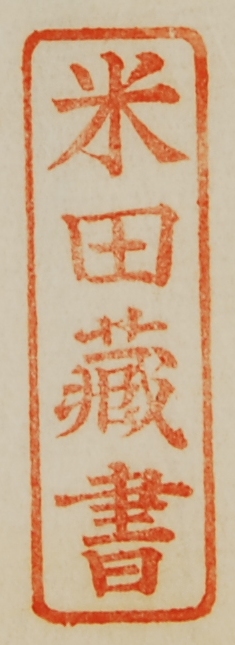 米田藏書